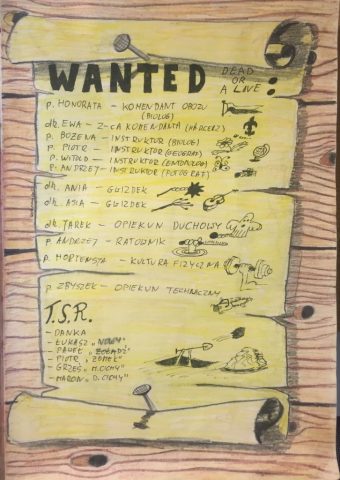 WANTED
DEAD
OR
A LIVE
P. HONORATA - KOMENDANT OBOZU
(BIOLOG)
dh. EWA - Z-CA KOMENDANTA (HARCERZ)
P. BOŻENA - INSTRUKTOR (BIOLOG)
P. PIOTR - INSTRUKTOR (GEOGRAF)
P. WITOLD - INSTRUKTOR (ENTOMOLOG)
P. ANDRZEJ - INSTRUKTOR (FOTOGRAF)
dh. ANIA - GWIZDEK
dh. ASIA - GWIZDEK
dh. JAREK - OPIEKUN DUCHOWY
P. ANDRZEJ - RATOWNIK
P. HORTENSJA - KULTURA FIZYCZNA
P. ZBYSZEK - OPIEKUN TECHNICZNY
T.S.R.
- DANKA
- ŁUKASZ „NOWY”
- PAWEŁ
- PIOTR „ZOMEK”
- GRZEŚ „M. CICHY”
- MARCIN „D. CICHY”